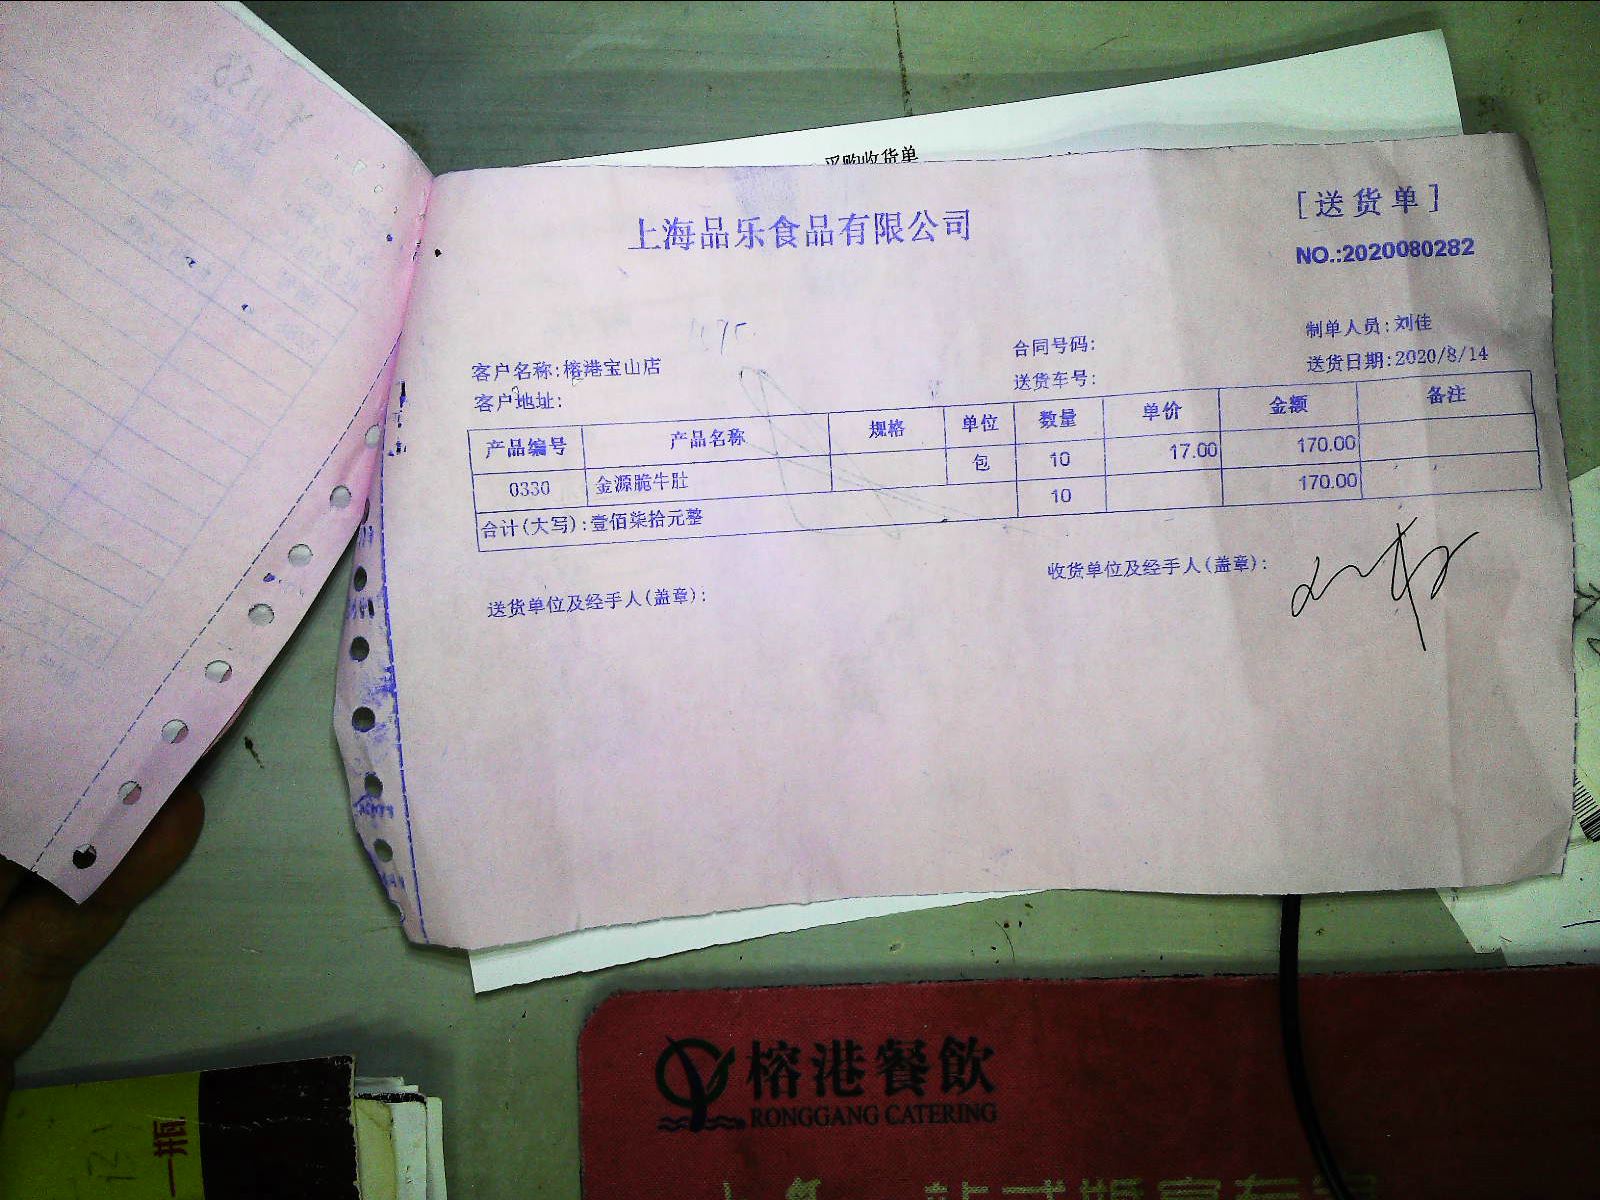 采购收货单
上海品乐食品有限公司
[送货单]
NO.:2020080282
客户名称:榕港宝山店
合同号码:
制单人员:刘佳
客户地址:
送货车号:
送货日期:2020/8/14
产品编号 产品名称 规格 单位 数量 单价 金额 备注
0330 金源脆牛肚 包 10 17.00 170.00
合计(大写):壹佰柒拾元整 10 170.00
送货单位及经手人(盖章):
收货单位及经手人(盖章):
榕港餐飲
RONGGANG CATERING
一瓶